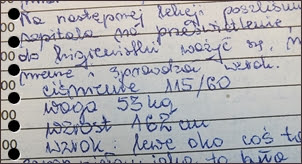 Na następnej lekcji poszliśmy
szpitala na prześwietlenie,
do higienistki ważyć się, m
mene i sprawdzać wzrok.
ciśnienie 115/60
waga 53 kg
wzrost 162 cm
wzrok: lewe oko coś t